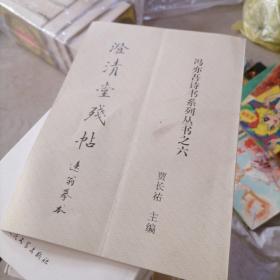 冯亦吾诗书系列丛书之六
贾长祐 主编
澄清堂残帖
逸翁摹本
文学出版社